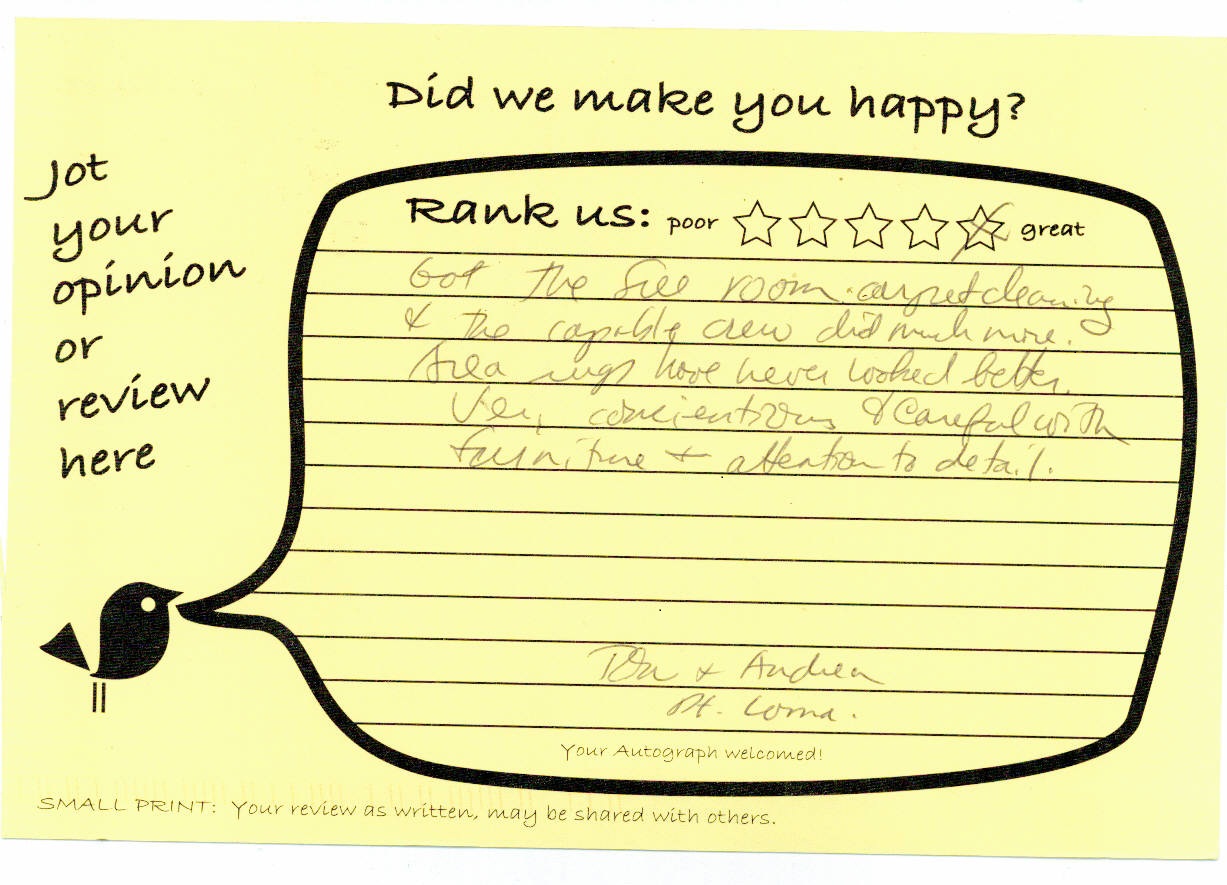 Did we make you happy?
Jot
your
opinion
or
review
here
Rank us: poor great
Got the free room carpet cleaning
& the capable crew did much more.
Area rugs have never looked better.
Very concientious & careful with
furniture + attention to detail.
+ Andrea
Pt. Loma.
Your Autograph welcomed!
SMALL PRINT: Your review as written, may be shared with others.